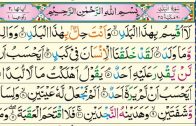 بِسْمِ اللهِ الرَّحْمٰنِ الرَّحِيْمِ
لَاۤ اُقْسِمُ بِهٰذَا الْبَلَدِ وَاَنْتَ حِلٌّۢ بِهٰذَا الْبَلَدِ
وَمَا وَلَدَ لَقَدْ خَلَقْنَا الْاِنْسَانَ فِيْ كَبَدٍ اَيَحْسَبُ اَنْ
لَّنْ يَّقْدِرَ عَلَيْهِ اَحَدٌ يَقُوْلُ اَهْلَكْتُ مَالًا لُّبَدًا
اَيَحْسَبُ اَنْ لَّمْ يَرَهٗۤ اَحَدٌ اَلَمْ نَجْعَلْ لَّهٗ عَيْنَيْنِ
وَشَفَتَيْنِ وَهَدَيْنٰهُ النَّجْدَيْنِ فَلَا اقْتَحَمَ الْعَقَبَةَ